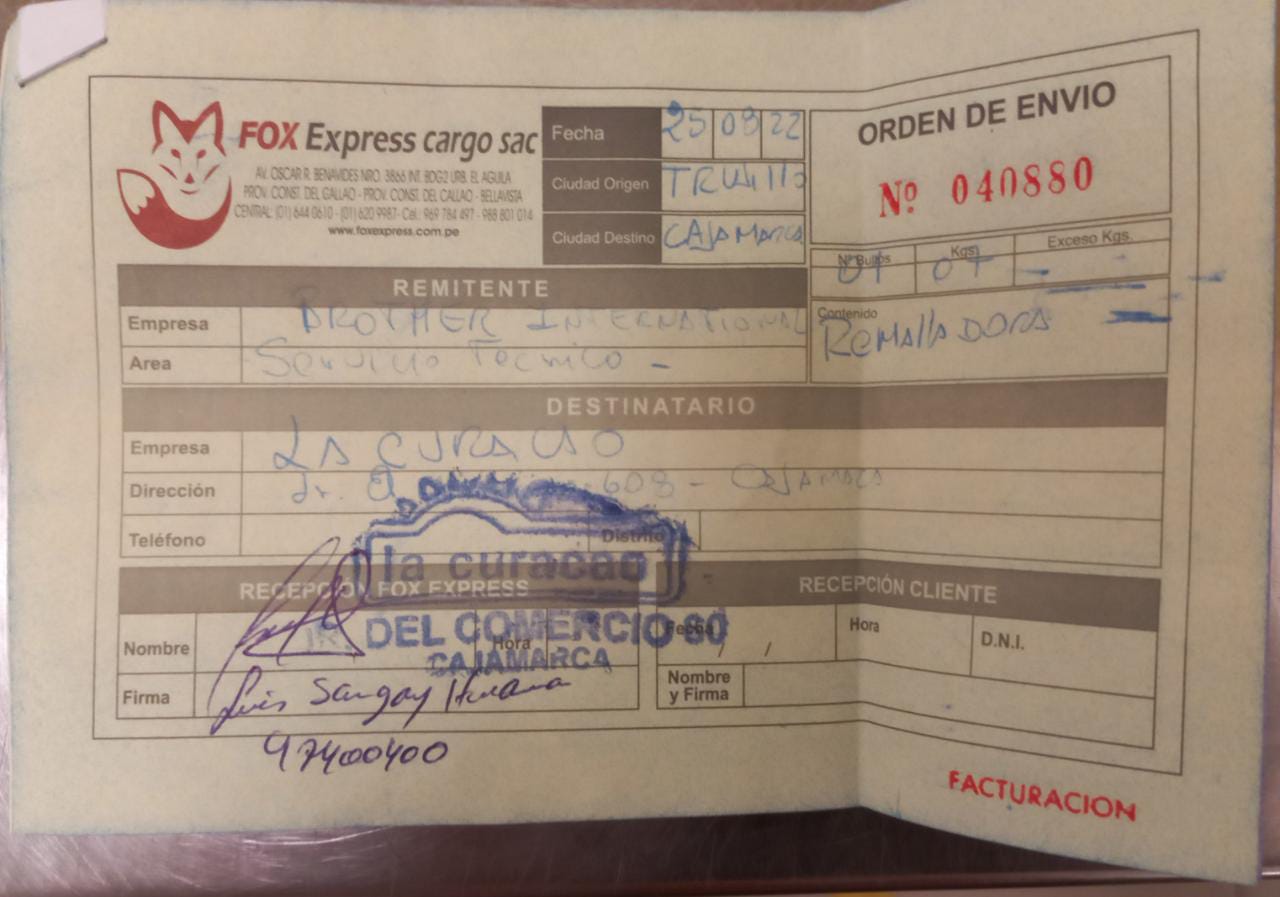 FOX Express cargo sac
AV. OSCAR R. BENAVIDES NRO. 3866 INT. BDG2 URB. EL AGUILA
PROV. CONST. DEL CALLAO - PROV. CONST. DEL CALLAO - BELLAVISTA
CENTRAL: (01) 644 0610 - (01) 620 9987- Cel.: 969 784 497 - 988 801 014
www.foxexpress.com.pe
Fecha 25 08 22
Ciudad Origen TRUJILLO
Ciudad Destino CAJAMARCA
ORDEN DE ENVIO
Nº 040880
Nº Bultos 01 Kgs. 07 Exceso Kgs. -
Contenido
REMALLADORA
REMITENTE
Empresa BROTHER INTERNATIONAL
Area Servicio Tecnico -
DESTINATARIO
Empresa LA CURACAO
Dirección Jr. 608 - CAJAMARCA
Teléfono Distrito
la curacao
DEL COMERCIO
CAJAMARCA
RECEPCIÓN FOX EXPRESS
Nombre Hora
Firma Luis Sangay
97400400
RECEPCIÓN CLIENTE
Fecha / / Hora D.N.I.
Nombre
y Firma
FACTURACION